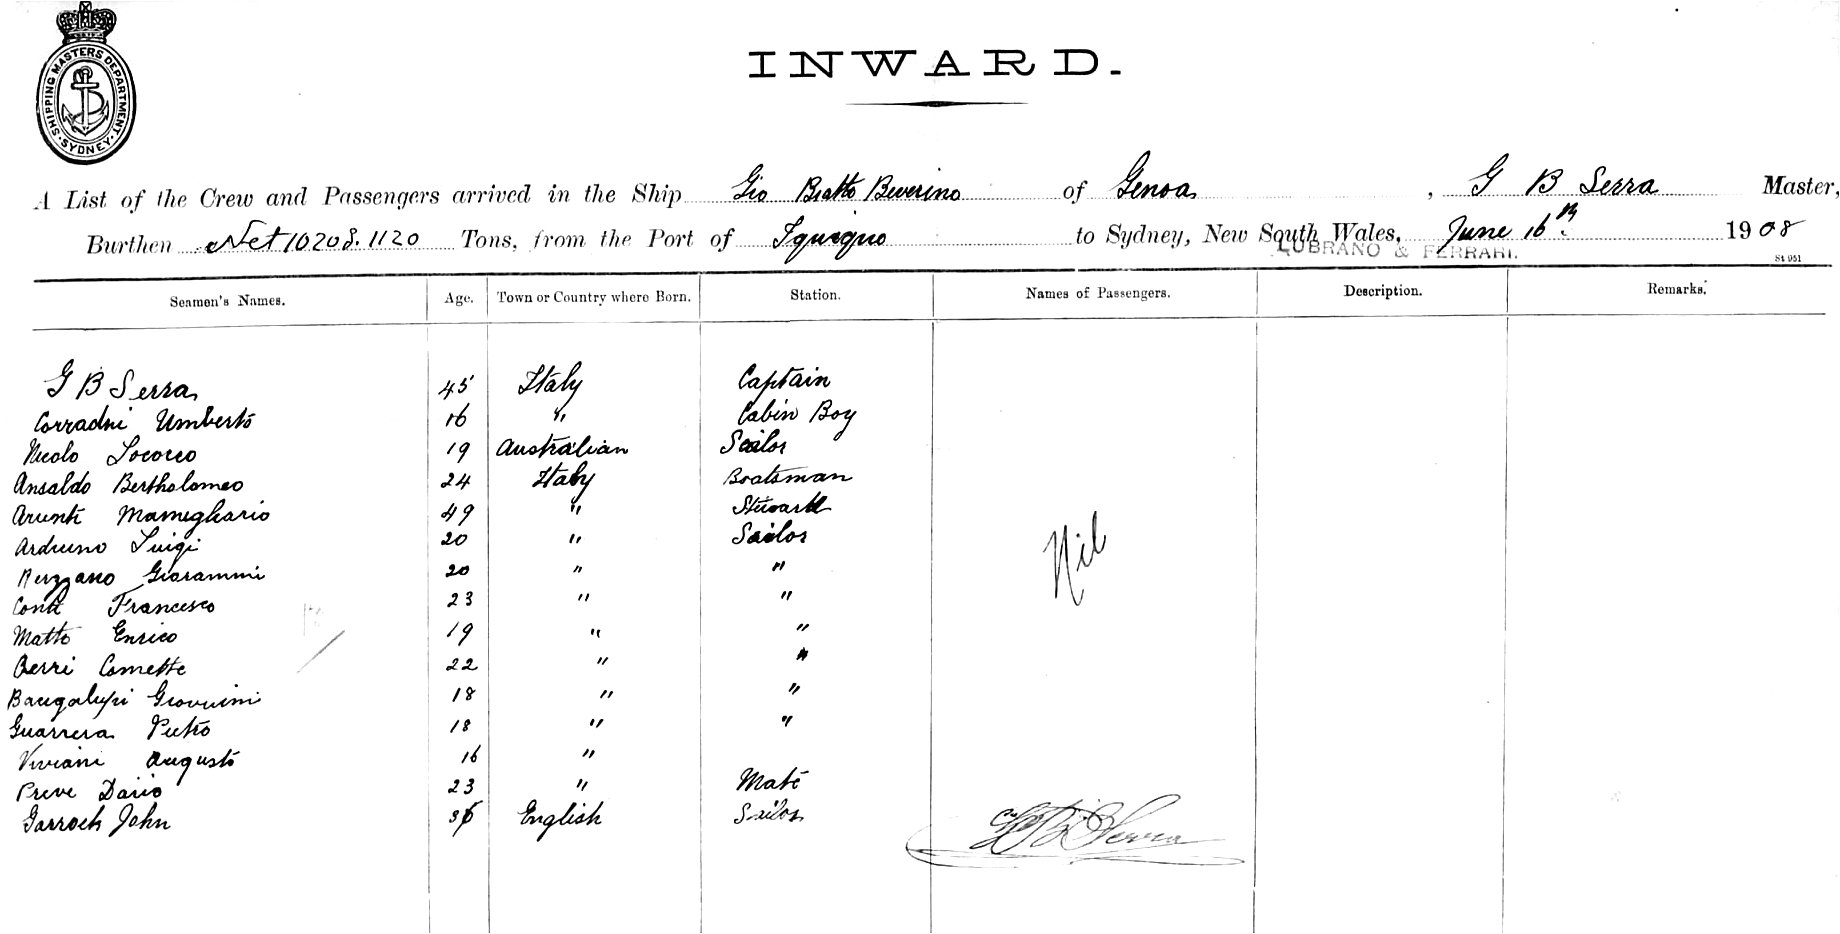 SHIPPING MASTERS DEPARTMENT. SYDNEY.
INWARD.
A List of the Crew and Passengers arrived in the Ship Gio Batto Beverino of Genoa, G B Serra Master,
Burthen Net 1020 8.1120 Tons, from the Port of Iquique to Sydney, New South Wales, June 16th 1908
LUBRANO & FERRARI.
St 951
Seamen's Names. Age. Town or Country where Born. Station. Names of Passengers. Description. Remarks.
G B Serra 45 Italy Captain
Corradni Umberto 16 " Cabin Boy
Nicolo Lococco 19 Australian Sailor
Ansaldo Bertholomeo 24 Italy Boatsman
49 "
Arduino Luigi 20 " Sailor
20 " "
Nil
Conti Francesco 23 " "
Matto Enrico 19 " "
Berri 22 " "
18 " "
Guarrera Pietro 18 " "
Viviani Augusto 16 "
Preve Dario 23 " Mate
Garroch John English Sailor
G B Serra